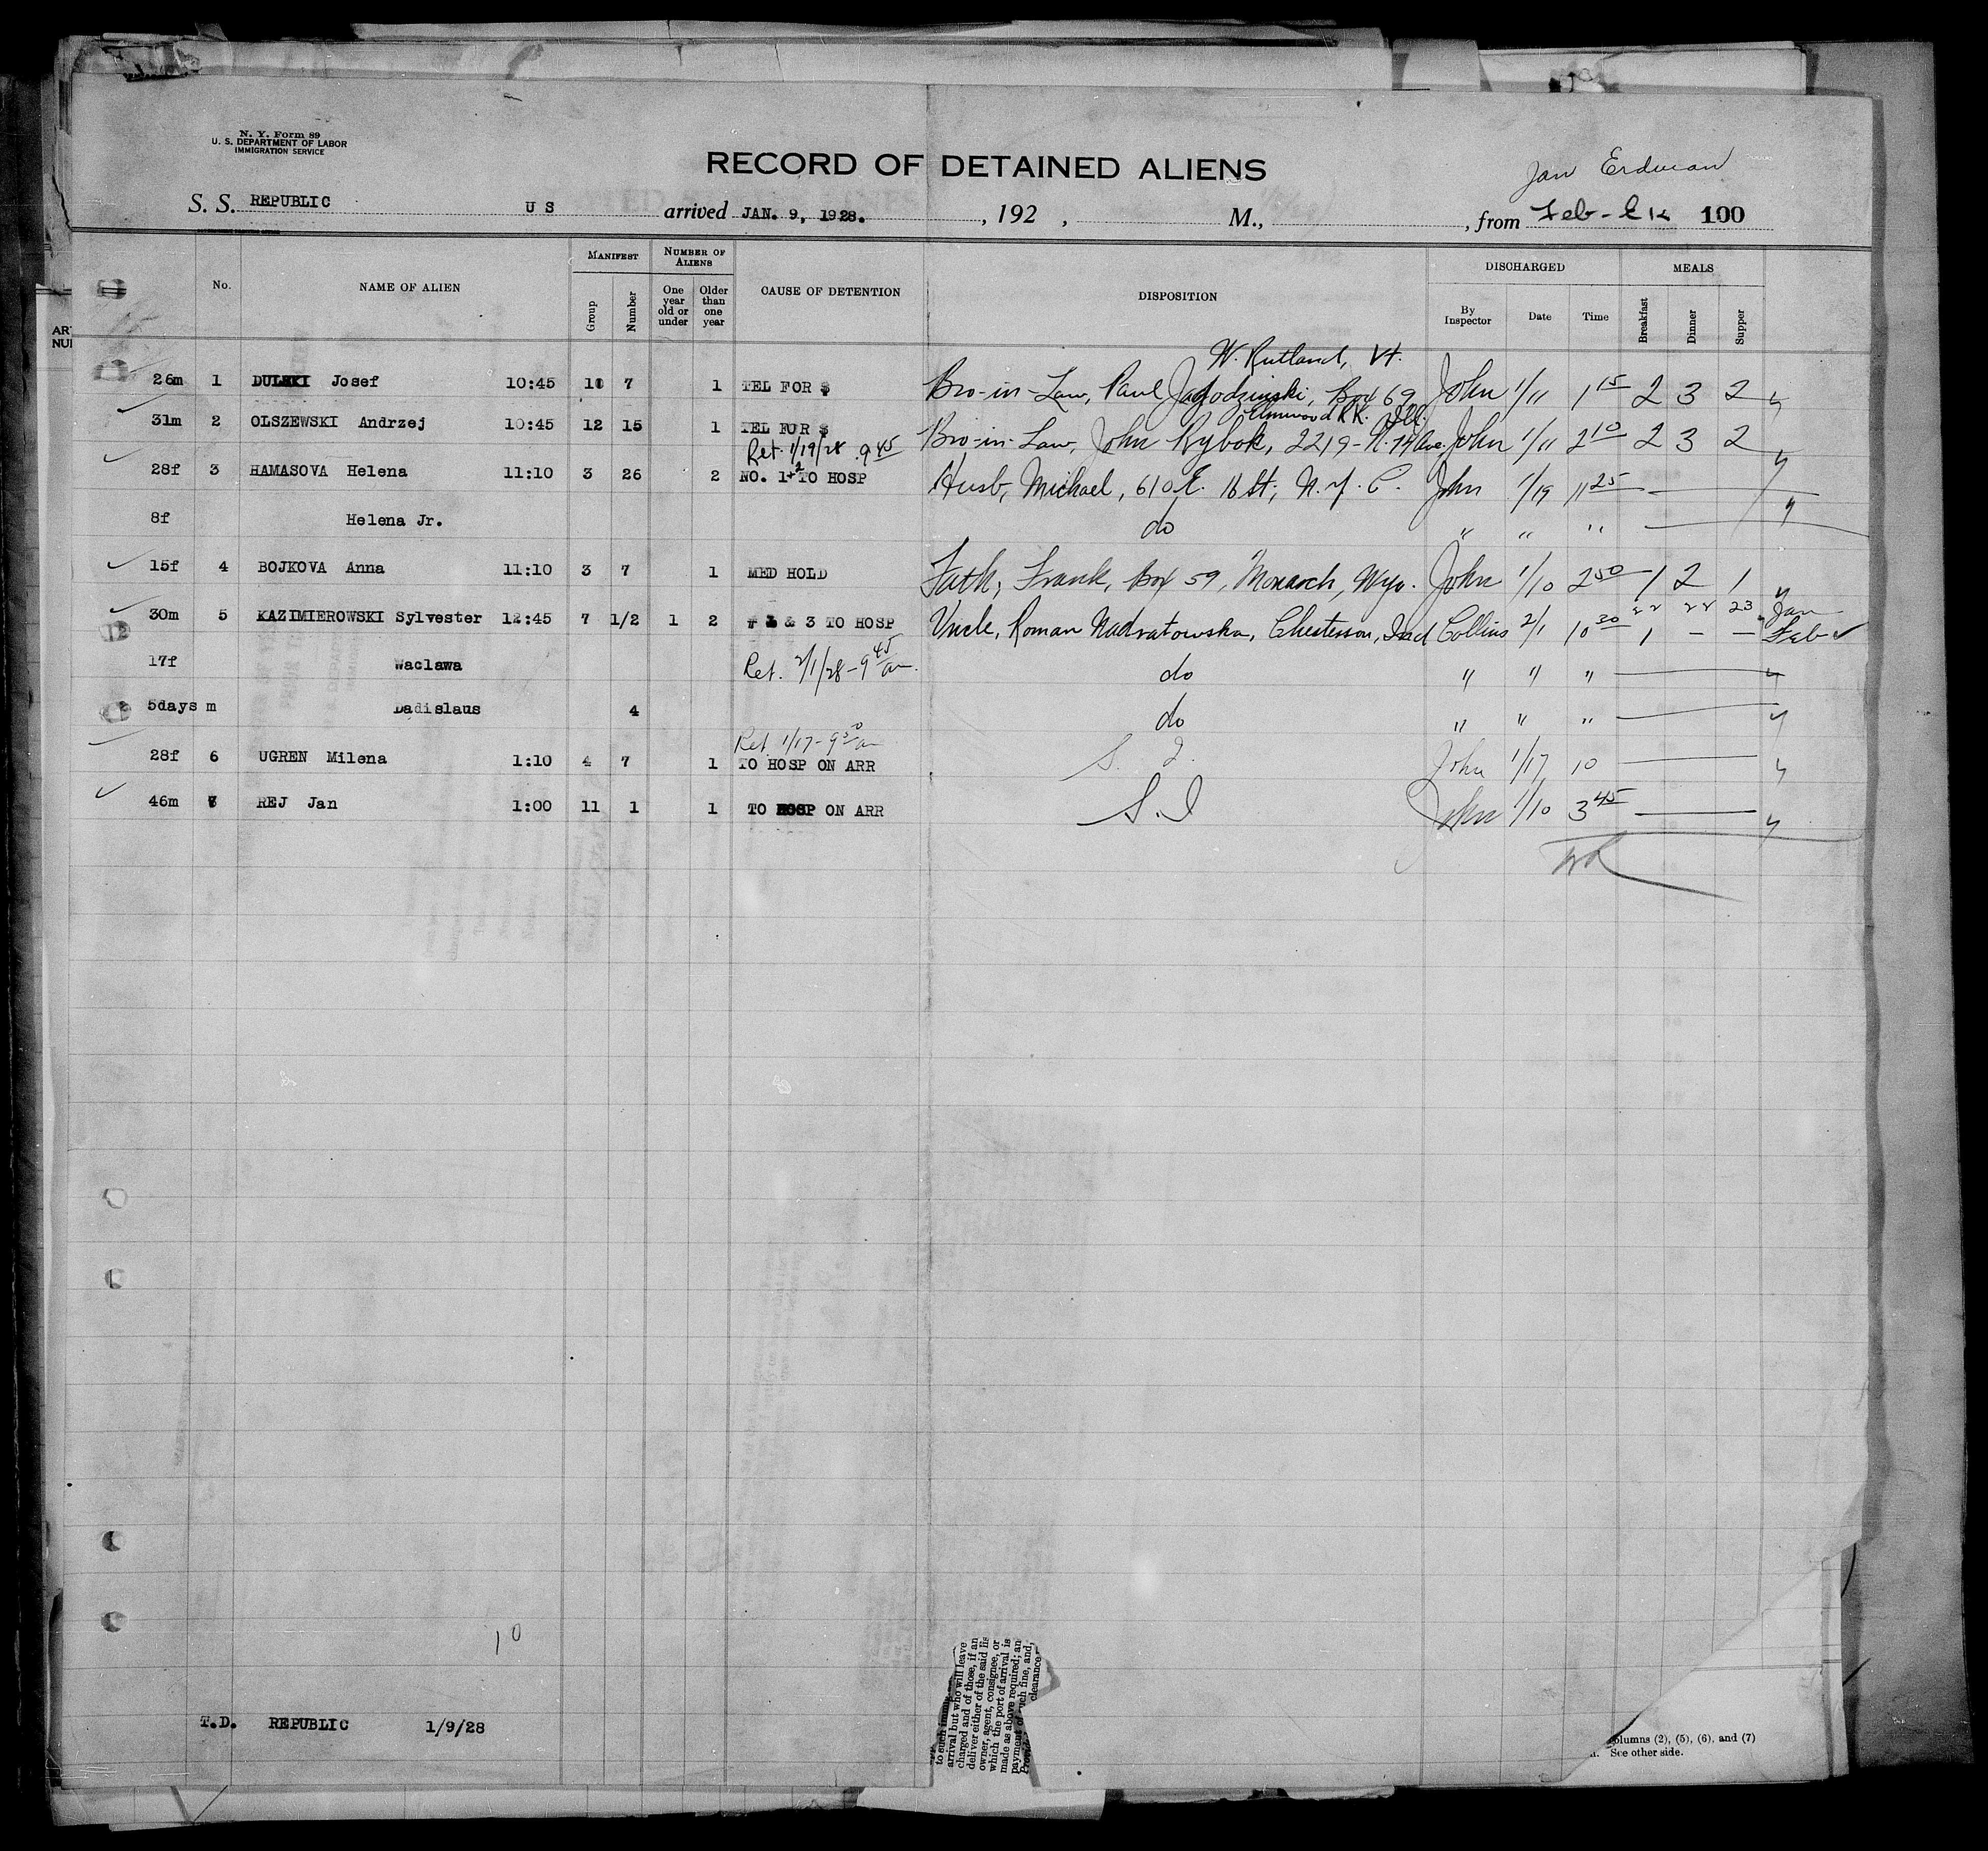 N. Y. Form 89
U. S. DEPARTMENT OF LABOR
IMMIGRATION SERVICE
RECORD OF DETAINED ALIENS
Jan Erdman
S. S. REPUBLIC U S arrived JAN. 9, 1928. , 192 , M., , from Feb - 100
No. NAME OF ALIEN MANIFEST Group Number NUMBER OF ALIENS One year old or under Older than one year CAUSE OF DETENTION DISPOSITION DISCHARGED By Inspector Date Time MEALS Breakfast Dinner Supper
W. Rutland, Vt.
26m 1 DULSKI Josef 10:45 7 1 TEL FOR $ Bro-in-Law, Paul Jagodzinski, Box 69 John 1/11 1 15 2 3 2
Elmwood PK. Ill.
31m 2 OLSZEWSKI Andrzej 10:45 12 15 1 TEL FOR $ Bro-in-Law, John Rybok, 2219-N. 74 Ave. John 1/11 2 10 2 3 2
Ret. 1/19/28 9 45
28f 3 HAMASOVA Helena 11:10 3 26 2 NO. 1+2 TO HOSP Husb, Michael, 610 E. 16 St, N.Y.C. John 1/19 11 25
8f Helena Jr. do " " "
15f 4 BOJKOVA Anna 11:10 3 7 1 MED HOLD Fath, Frank, Box 59, Monarch, Wyo. John 1/10 2 50 1 2 1
22 22 23 Jan
30m 5 KAZIMIEROWSKI Sylvester 12:45 7 1/2 1 2 # 1 & 3 TO HOSP Uncle, Roman Nadratowska, Chesterson, Ind Collins 2/1 10 30 1 - - Feb
17f Waclawa Ret. 2/1/28 - 9 45 am. do " " "
5days m Ladislaus 4 do " " "
Ret. 1/17 - 9 30 am
28f 6 UGREN Milena 1:10 4 7 1 TO HOSP ON ARR S. I. John 1/17 10
46m 7 REJ Jan 1:00 11 1 1 TO HOSP ON ARR S. I John 1/10 3 45
10
T.D. REPUBLIC 1/9/28
arrival but who will leave
charged and of those, if an
deliver either of the said lis
owner, agent, consignee, or
which the port of arrival is
made as above required; an
payment of such fine, and,
clearance
columns (2), (5), (6), and (7)
See other side.